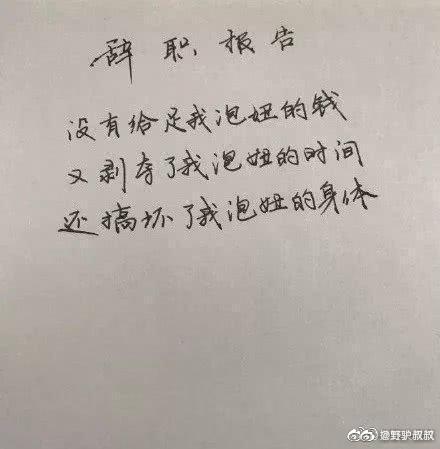 辞职报告
没有给足我泡妞的钱
又剥夺了我泡妞的时间
还搞坏了我泡妞的身体
@野驴叔叔